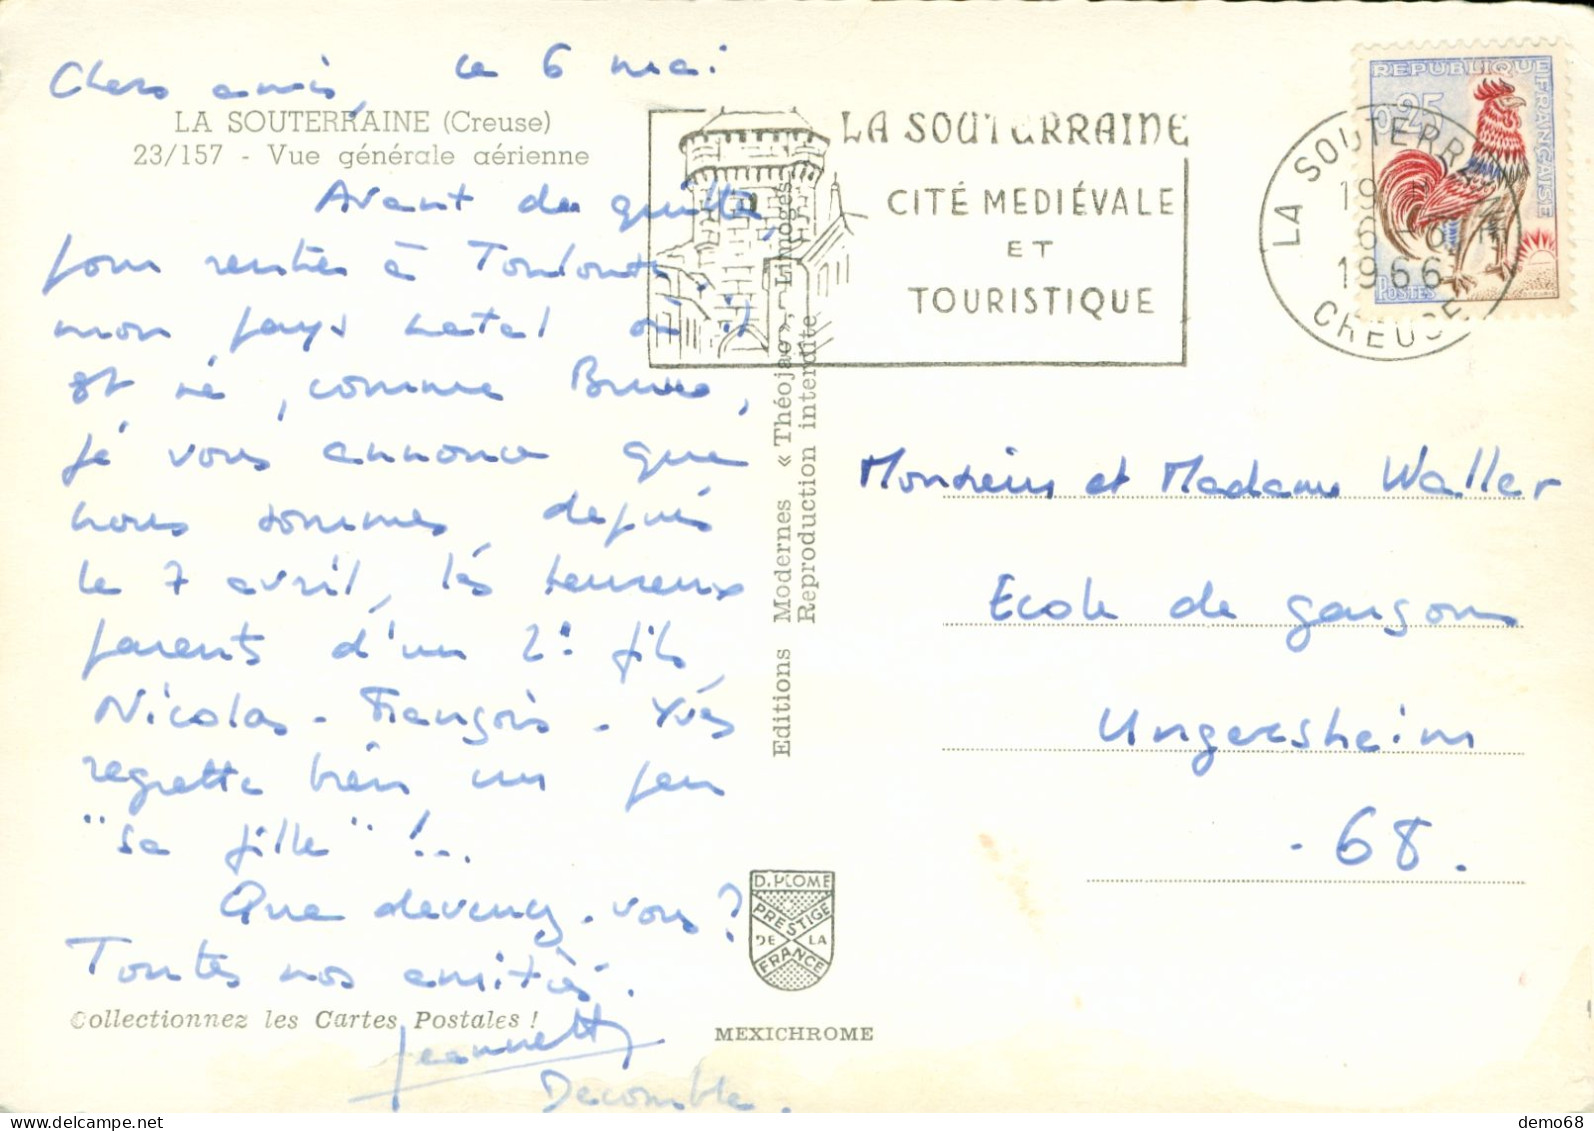 le 6 mai
Chers amis,
LA SOUTERRAINE (Creuse)
23/157 - Vue générale aérienne
Avant de quitter,
pour rentrer à
mon pays natal où
est né, comme Bruno,
je vous annonce que
nous sommes depuis
le 7 avril, les heureux
parents d'un 2e fils
Nicolas-François. Yves
regrette bien un peu
"sa fille" !..
Que devenez-vous?
Toutes nos amitiés.
Collectionnez les Cartes Postales !
Jeannette
Decomble.
Editions Modernes « Théojac », Limoges
Reproduction interdite
D.PLOME
PRESTIGE
DE LA
FRANCE
MEXICHROME
LA SOUTERRAINE
CITÉ MEDIÉVALE
ET
TOURISTIQUE
LA SOUTERRAINE
19 H
6 - 6
1966
CREUSE
REPUBLIQUE FRANÇAISE
0,25
POSTES
Monsieur et Madame Waller
Ecole de garçons
Ungersheim
- 68.
demo68